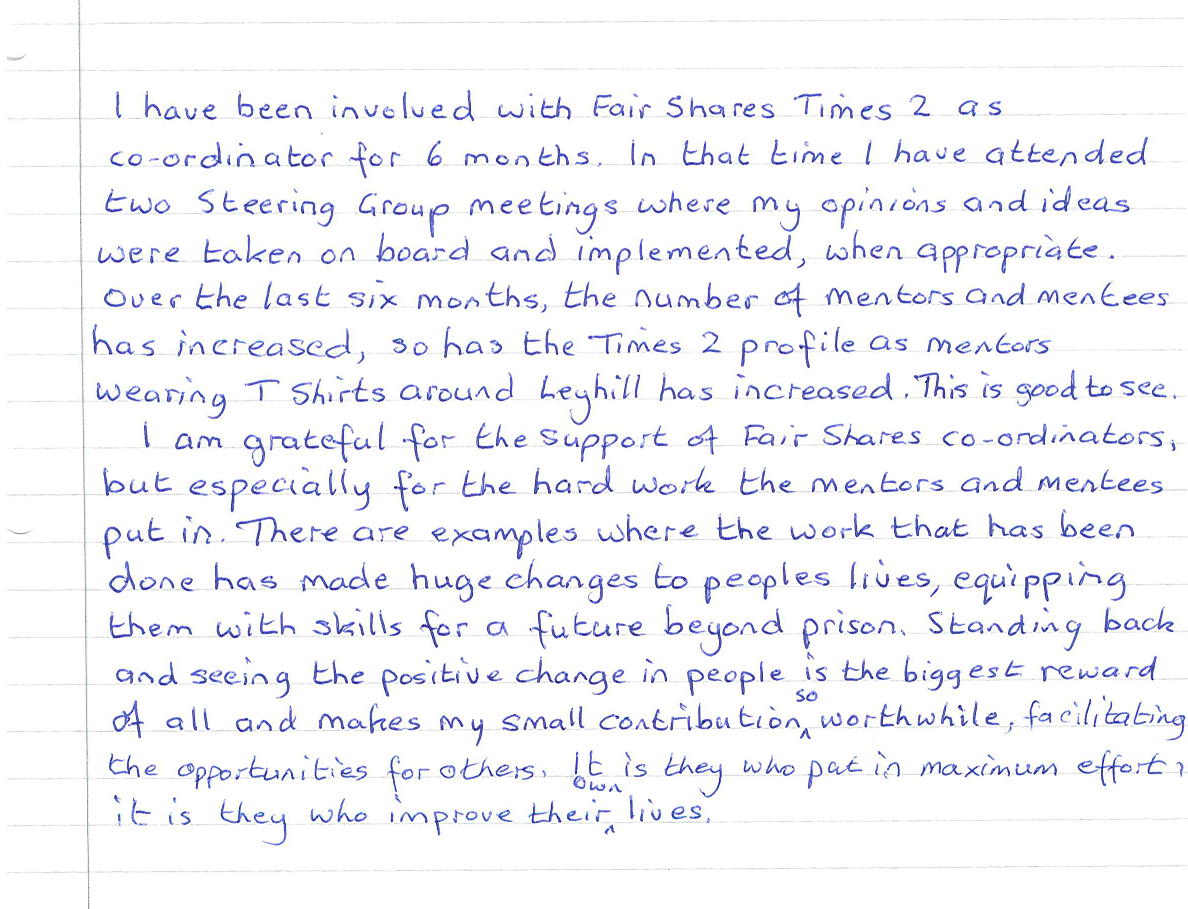 I have been involved with Fair Shares Times 2 as
co-ordinator for 6 months. In that time I have attended
two Steering Group meetings where my opinions and ideas
were taken on board and implemented, when appropriate.
Over the last six months, the number of mentors and mentees
has increased, so has the Times 2 profile as mentors
wearing T Shirts around Leyhill has increased. This is good to see.
I am grateful for the support of Fair Shares co-ordinators,
but especially for the hard work the mentors and mentees
put in. There are examples where the work that has been
done has made huge changes to peoples lives, equipping
them with skills for a future beyond prison. Standing back
and seeing the positive change in people is the biggest reward
of all and makes my small contribution so worthwhile, facilitating
the opportunities for others. It is they who put in maximum effort,
it is they who improve their own lives.